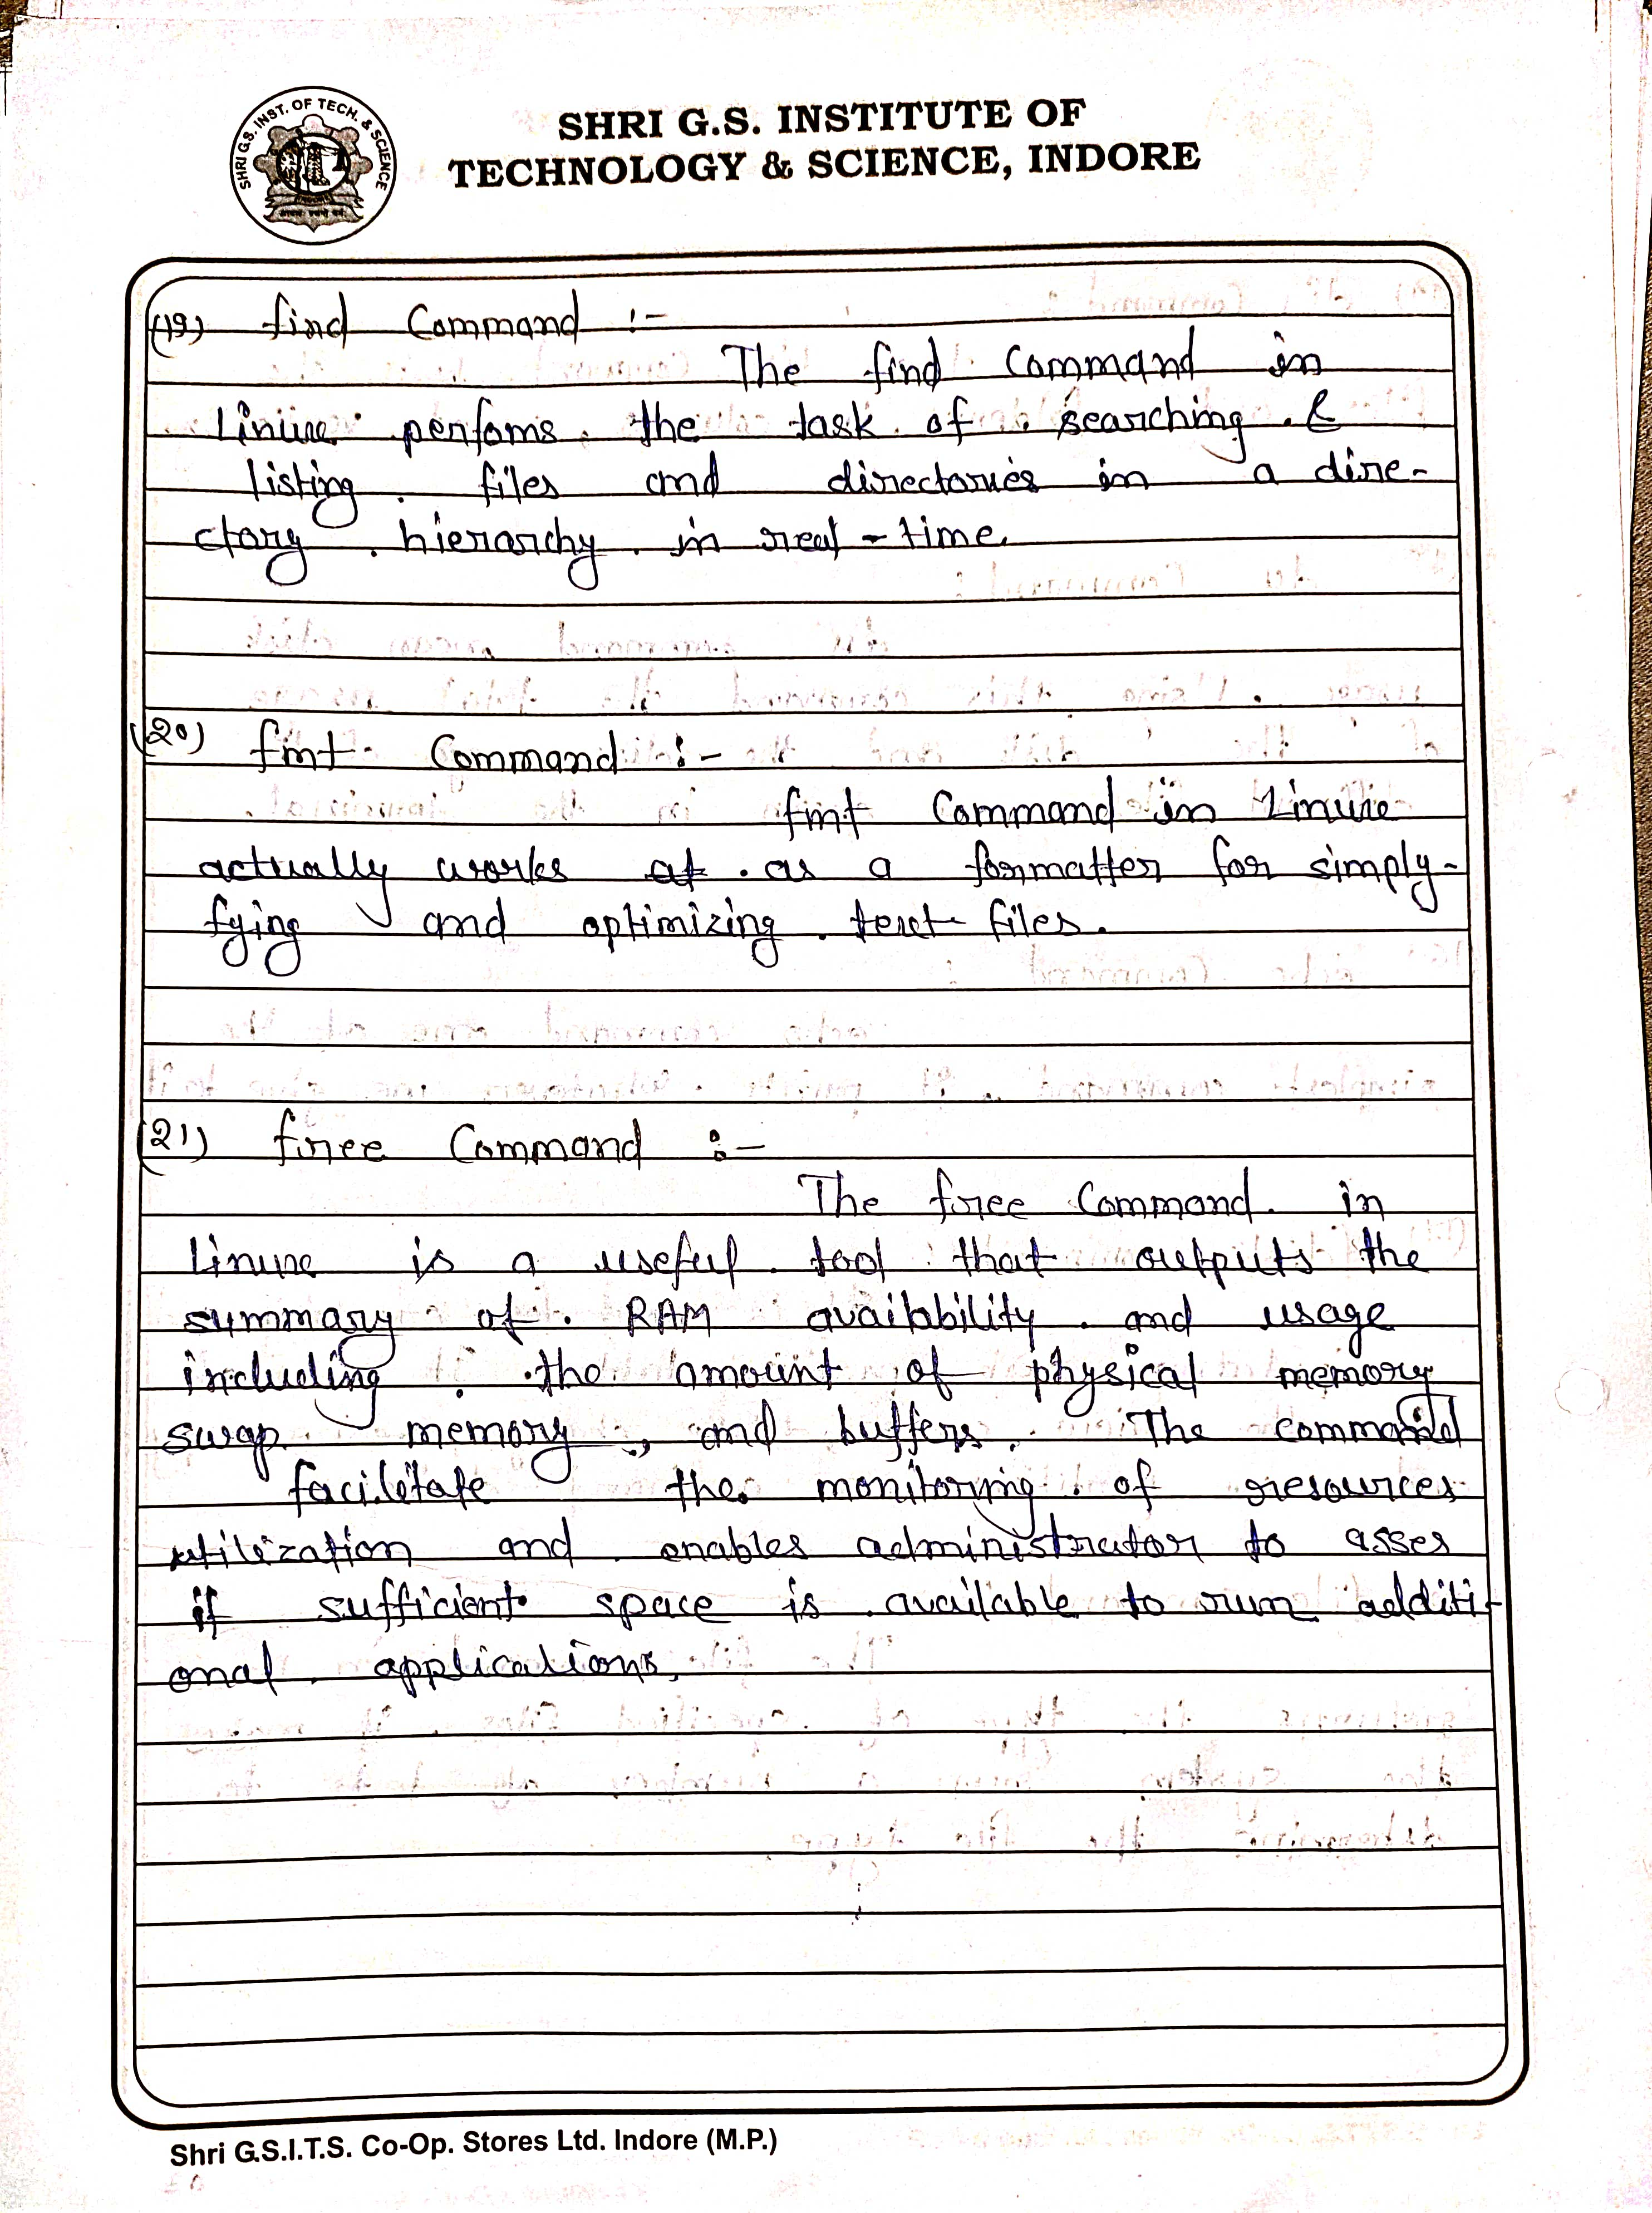 SHRI G.S. INST. OF TECH. & SCIENCE
SHRI G.S. INSTITUTE OF
TECHNOLOGY & SCIENCE, INDORE
(19) find Command :-
The find Command in
Linux perfoms the task of searching &
listing files and directories in a dire-
ctory hierarchy in real-time.
(20) fmt Command :-
fmt Command in Linux
actually works at as a formatter for simply-
fying and optimizing text files.
(21) free Command :-
The free Command in
Linux is a useful tool that outputs the
summary of RAM availability and usage
including the amount of physical memory
swap memory, and buffers. The command
facilitate the monitoring of resources
utilization and enables administrator to asses
if sufficient space is available to run additi-
onal applications.
Shri G.S.I.T.S. Co-Op. Stores Ltd. Indore (M.P.)